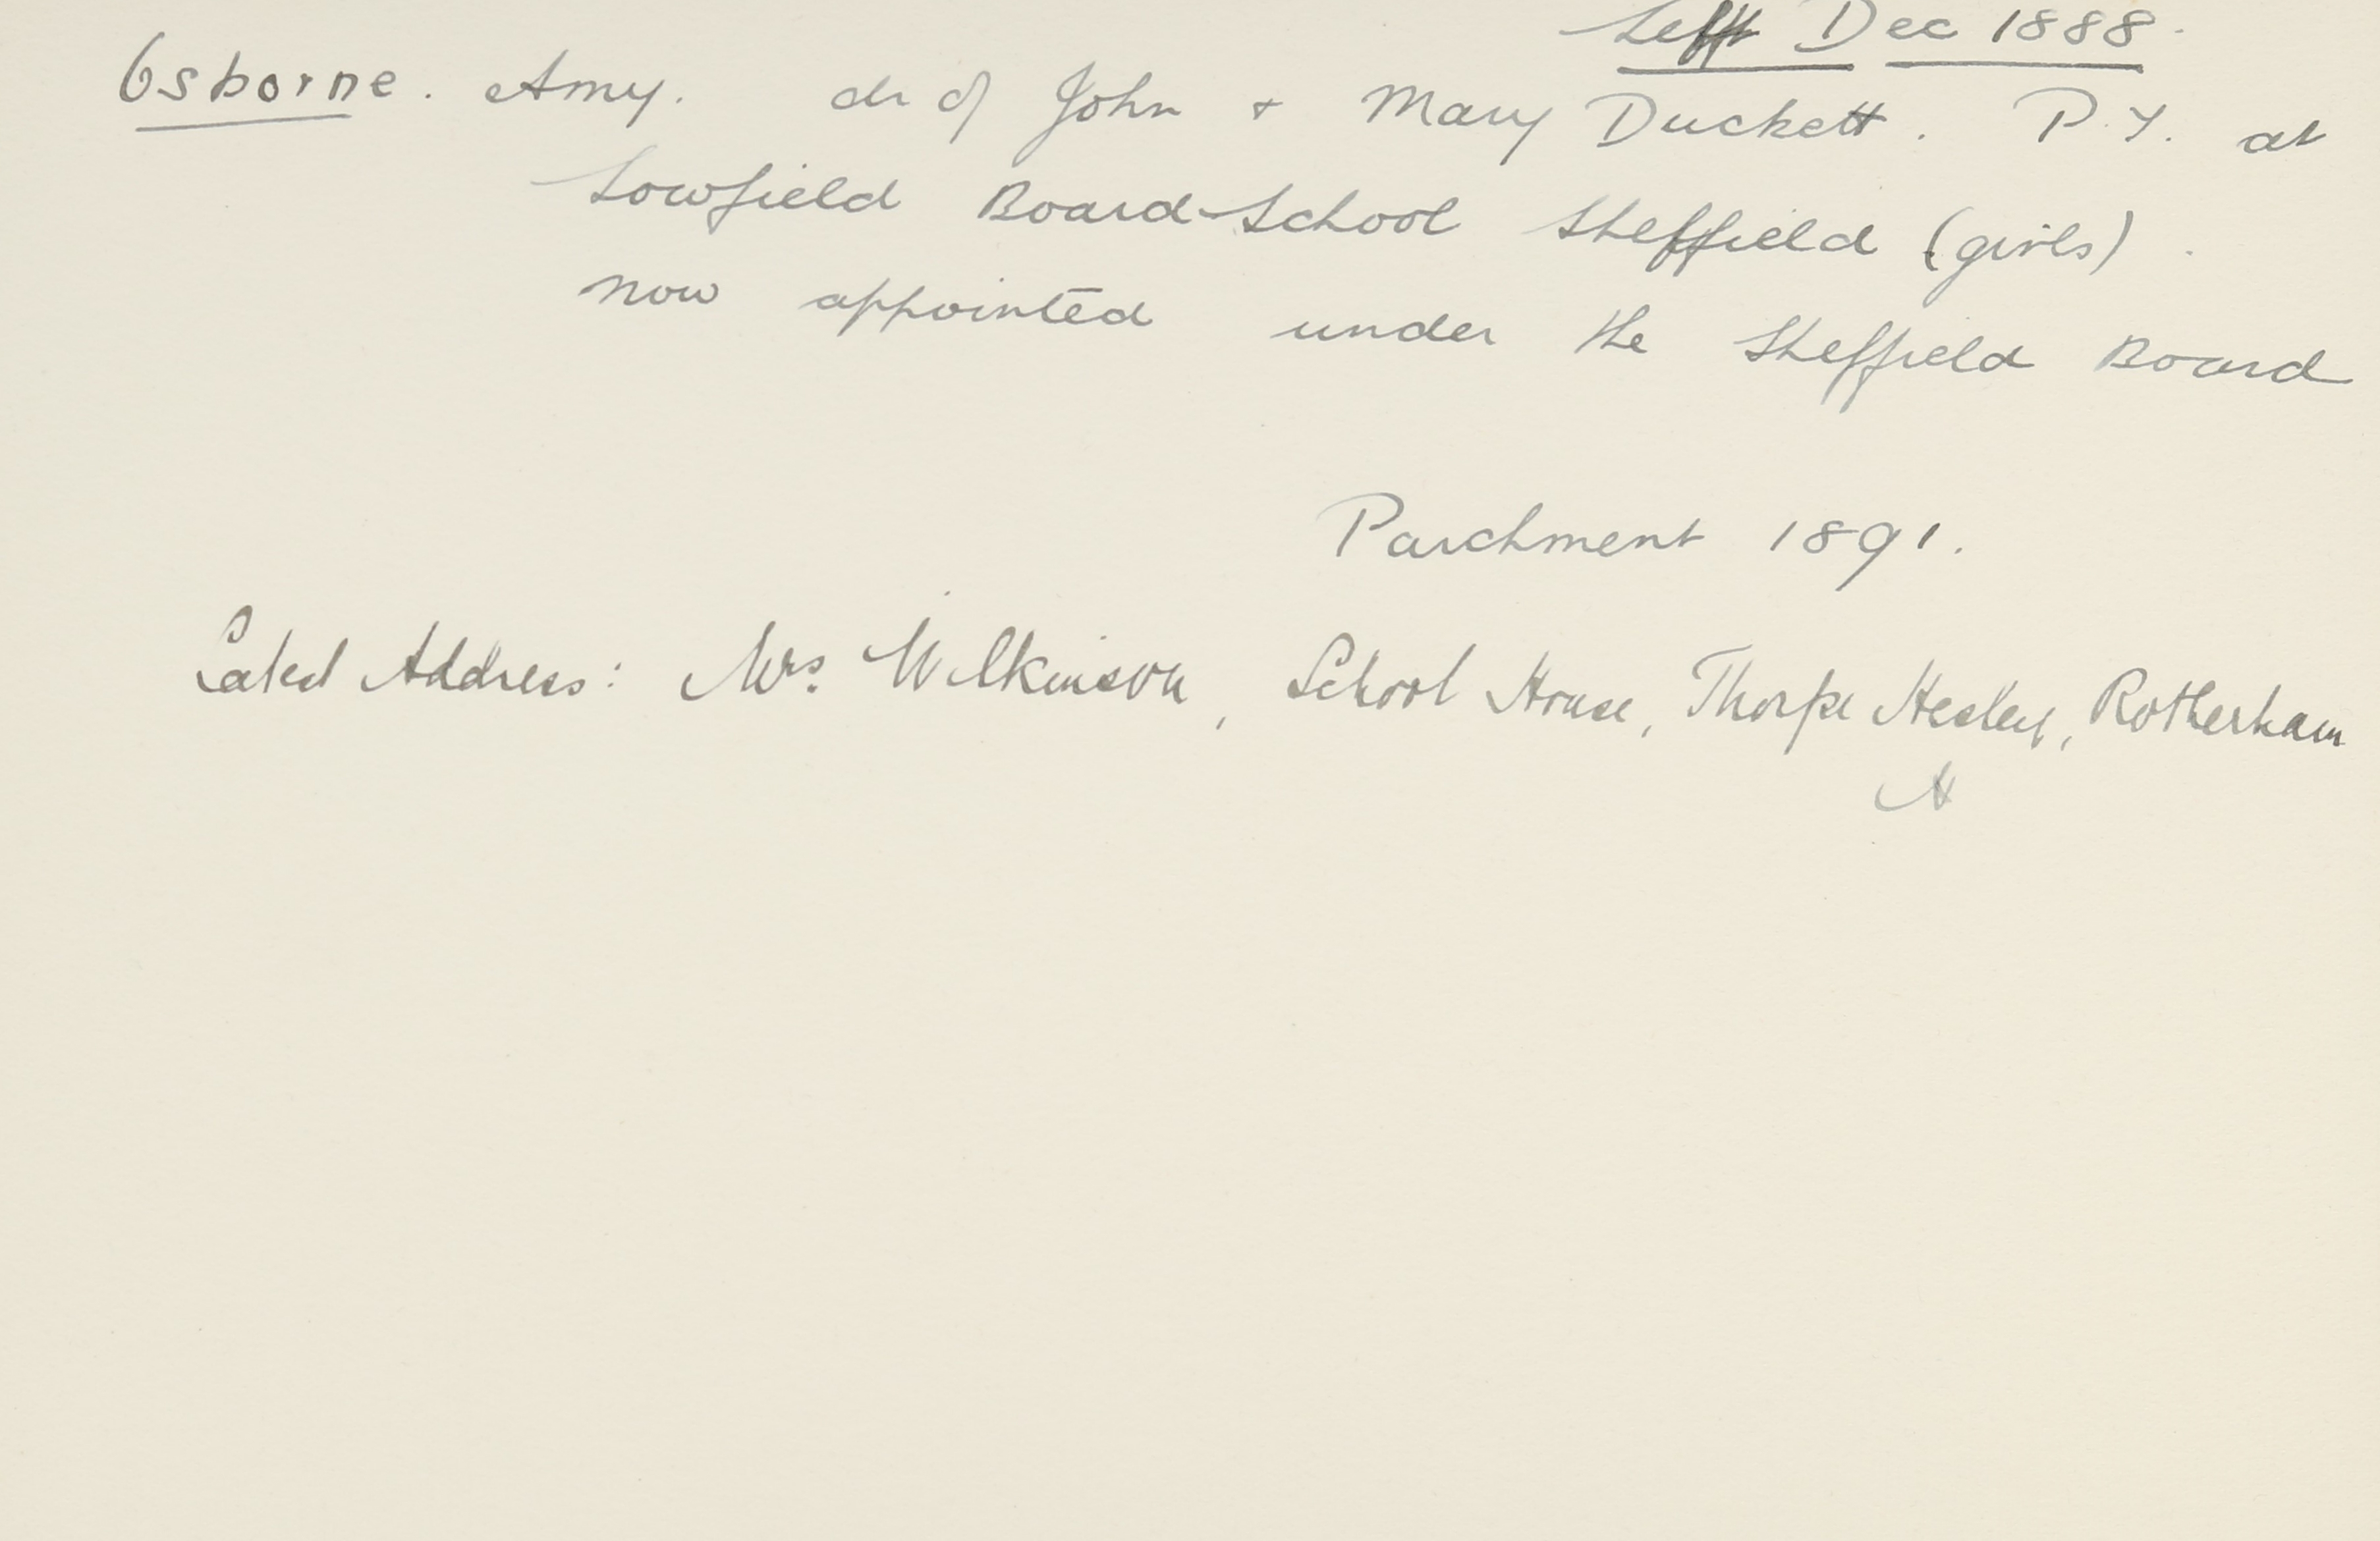 Left Dec 1888.
Osborne. Amy. dr of John + Mary Duckett. P.T. at
Lowfield Board School Sheffield (girls).
now appointed under the Sheffield Board
Parchment 1891.
Address: Mrs. Wilkinson, School House, Thorpe Hesley, Rotherham